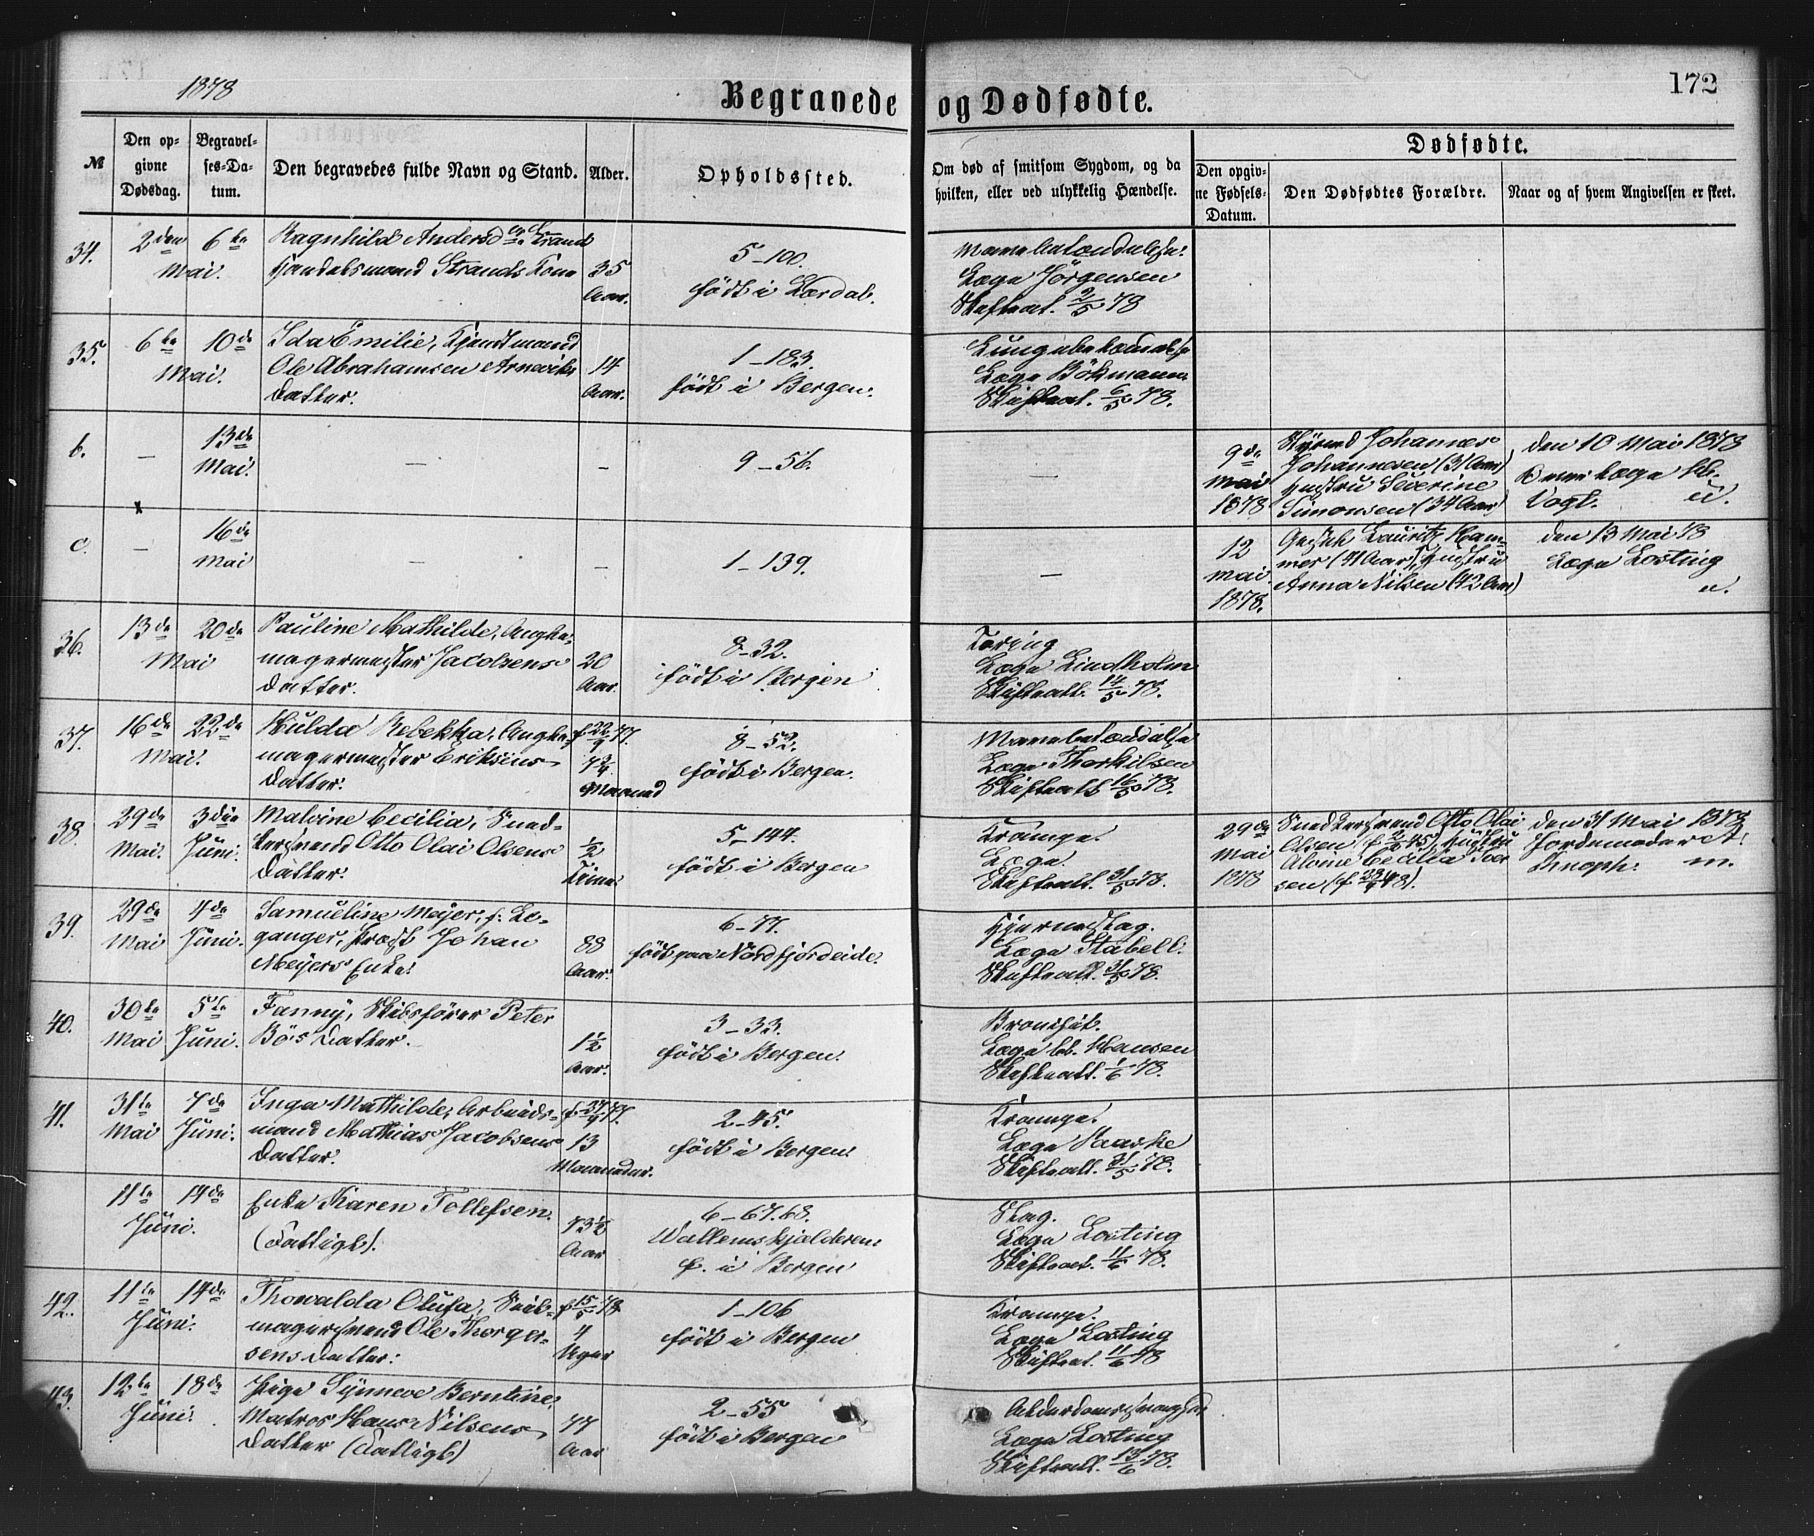 1878
Begravede og Dødfødte.
172
№
Den op-
givne
Dødsdag.
Begravel-
ses-Da-
tum.
Den begravedes fulde Navn og Stand.
Alder.
Opholdssted.
Om død af smitsom Sygdom, og da
hvilken, eller ved ulykkelig Hændelse.
Dødfødte.
Den opgiv-
ne Fødsels-
Datum.
Den Dødfødtes Forældre.
Naar og af hvem Angivelsen er skeet.
34.
2den
6te
Mai.
Ragnhild Andersd
Handelsmand Strands Kone
35
Aar.
5-100.
født i Lærdal.
Mavebetændelse.
Læge Jörgensen
Skifteatt. 2/5 78
35.
6te
10de
Mai.
Ida Emilie,
Ole Abrahamsen Arneviks
Datter.
14
Aar.
1-183.
født i Bergen.
Lungebetændelse
Læge Bökmann.
Skifteat. 6/5 78.
b.
—
13de
Mai.
—
—
9-56.
—
9de
Mai
1878
Styrmd Johannes
Johannesen (31 Aar)
Hustru Severine
Simonsen (34 Aar)
den 10 Mai 1878
Læge hb.
Vogt.
c.
—
16de
Mai
—
—
1-139.
—
12
Mai
1878.
Lauritz Ham-
mer (41 Aar), Hustru
Anna Nilsen (42 Aar)
den 13 Mai 78
Læge Losting
u.
36.
13de
20de
Mai
Pauline Mathilde,
magermester Jacobsens
Datter.
20
Aar.
8-32.
født i Bergen
Tæring
Læge Lindholm
Skifteatt. 14/5 78.
37.
16de
22de
Mai.
Hulda Rebekka,
magermester Eriksens
Datter.
7 3/4
Maaned
8-52.
født i Bergen.
Mavebetændelse
Læge Therkilsen
Skifteatt 16/5 78.
38.
29de
Mai.
3die
Juni.
Malvine Cecilia, Sned-
kersvend Otto Olai Olsens
Datter.
1/2
Time
5-144.
født i Bergen
Krampe.
Læge
Skifteatt. 31/5 78.
29de
Mai
1878
Snedkersvend Otto Olai
Olsen Hustru
Alvine Cecilia Iver
sen
den 31 Mai 1878
Jordemoder A.
Knoph. m.
39.
29de
Mai
4de
Juni.
Samueline Meyer, f. Le-
ganger, Prost Johan
Meyers Enke.
88
Aar.
6-77.
født paa Nordfjordeide.
Hjerneslag.
Læge Stabell.
Skifteatt. 31/5 78.
40.
30te
Mai
5te
Juni.
Fanny, Skibsfører Peter
Böis Datter.
1 1/2
Aar.
3-33.
født i Bergen.
Bronchit.
Læge hb. Hansen
Skifteatt. 1/6 78.
41.
31te
Mai
7de
Juni.
Inga Mathilde, Arbeids-
mand Mathias Jacobsens
Datter.
13
Maaneder.
2-45.
født i Bergen.
Krampe.
Læge Kaaske
Skifteatt. 31/5 78.
11te
19de
Juni.
Enke Karen Tollefsen.
(Fattiglt).
73 1/2
Aar
6-67.68.
Wallemskjælderen.
f. i Bergen
Slag.
Læge Losting
Skifteat. 11/6 78.
42.
11te
14de
Juni.
Thowalda Olufa, Seil-
magersvend Ole Thorger-
sens Datter.
f. 15/5 78
4
Uger
1-106
født i Bergen
Krampe.
Læge Losting
Skifteat. 11/6 78
43.
12te
18de
Juni.
Pige Synneve Berntine,
Matros Hans Nilsens
Datter (Fattiglt)
77
Aar
2-55
født i Bergen
Alderdomssvaghed
Læge Losting
Skifteatt. 13/6 78.